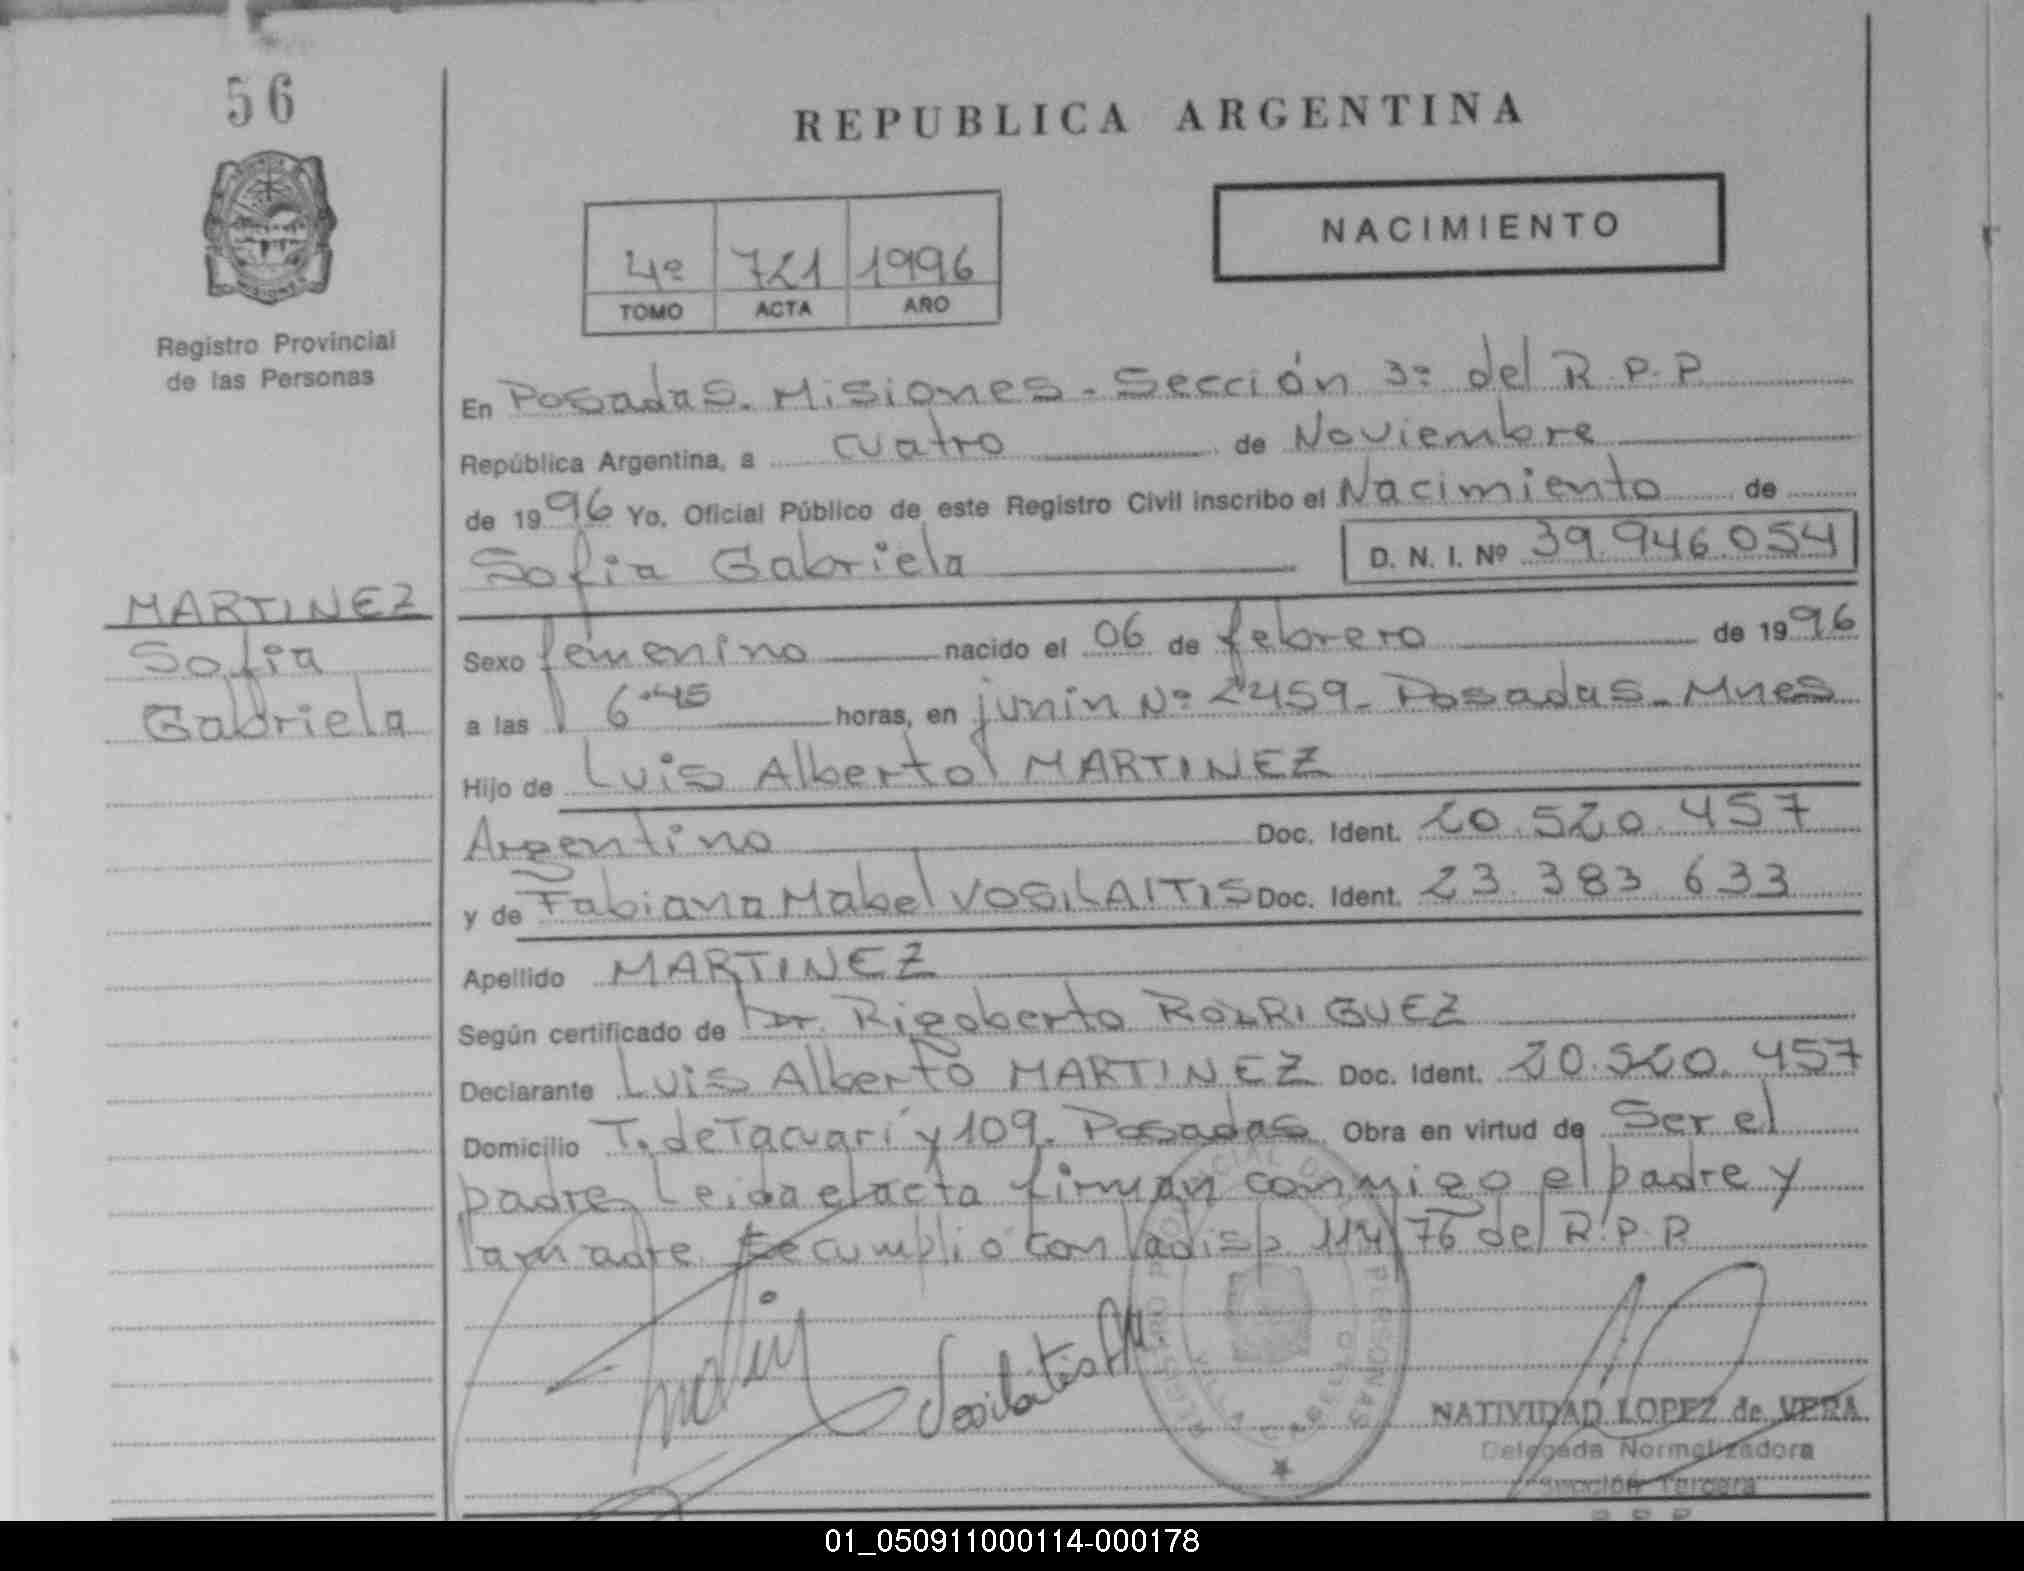 56
REPUBLICA ARGENTINA
NACIMIENTO
4º 721 1996
TOMO ACTA AÑO
Registro Provincial
de las Personas
En Posadas. Misiones - Sección 3º del R.P.P
República Argentina, a cuatro de Noviembre
de 1996 Yo, Oficial Público de este Registro Civil inscribo el Nacimiento de
Sofia Gabriela D. N. I. Nº 39.946.054
MARTINEZ
Sofia
Gabriela
Sexo femenino nacido el 06 de febrero de 1996
a las 6.45 horas, en junin Nº 2459 - Posadas - Mnes
Hijo de Luis Alberto MARTINEZ
Argentino Doc. Ident. 20.520.457
y de Fabiana Mabel VOSILAITIS Doc. Ident. 23 383 633
Apellido MARTINEZ
Según certificado de Dr. Rigoberto RODRIGUEZ
Declarante Luis Alberto MARTINEZ Doc. Ident. 20.520.457
Domicilio T. de Tacuarí y 109. Posadas Obra en virtud de Ser el
padre Leida el acta firman conmigo el padre y
la madre se cumplio con la disp 114/76 del R.P.P.
NATIVIDAD LOPEZ de VERA
Delegada Normalizadora
Sección Tercera
R P P
01_050911000114-000178